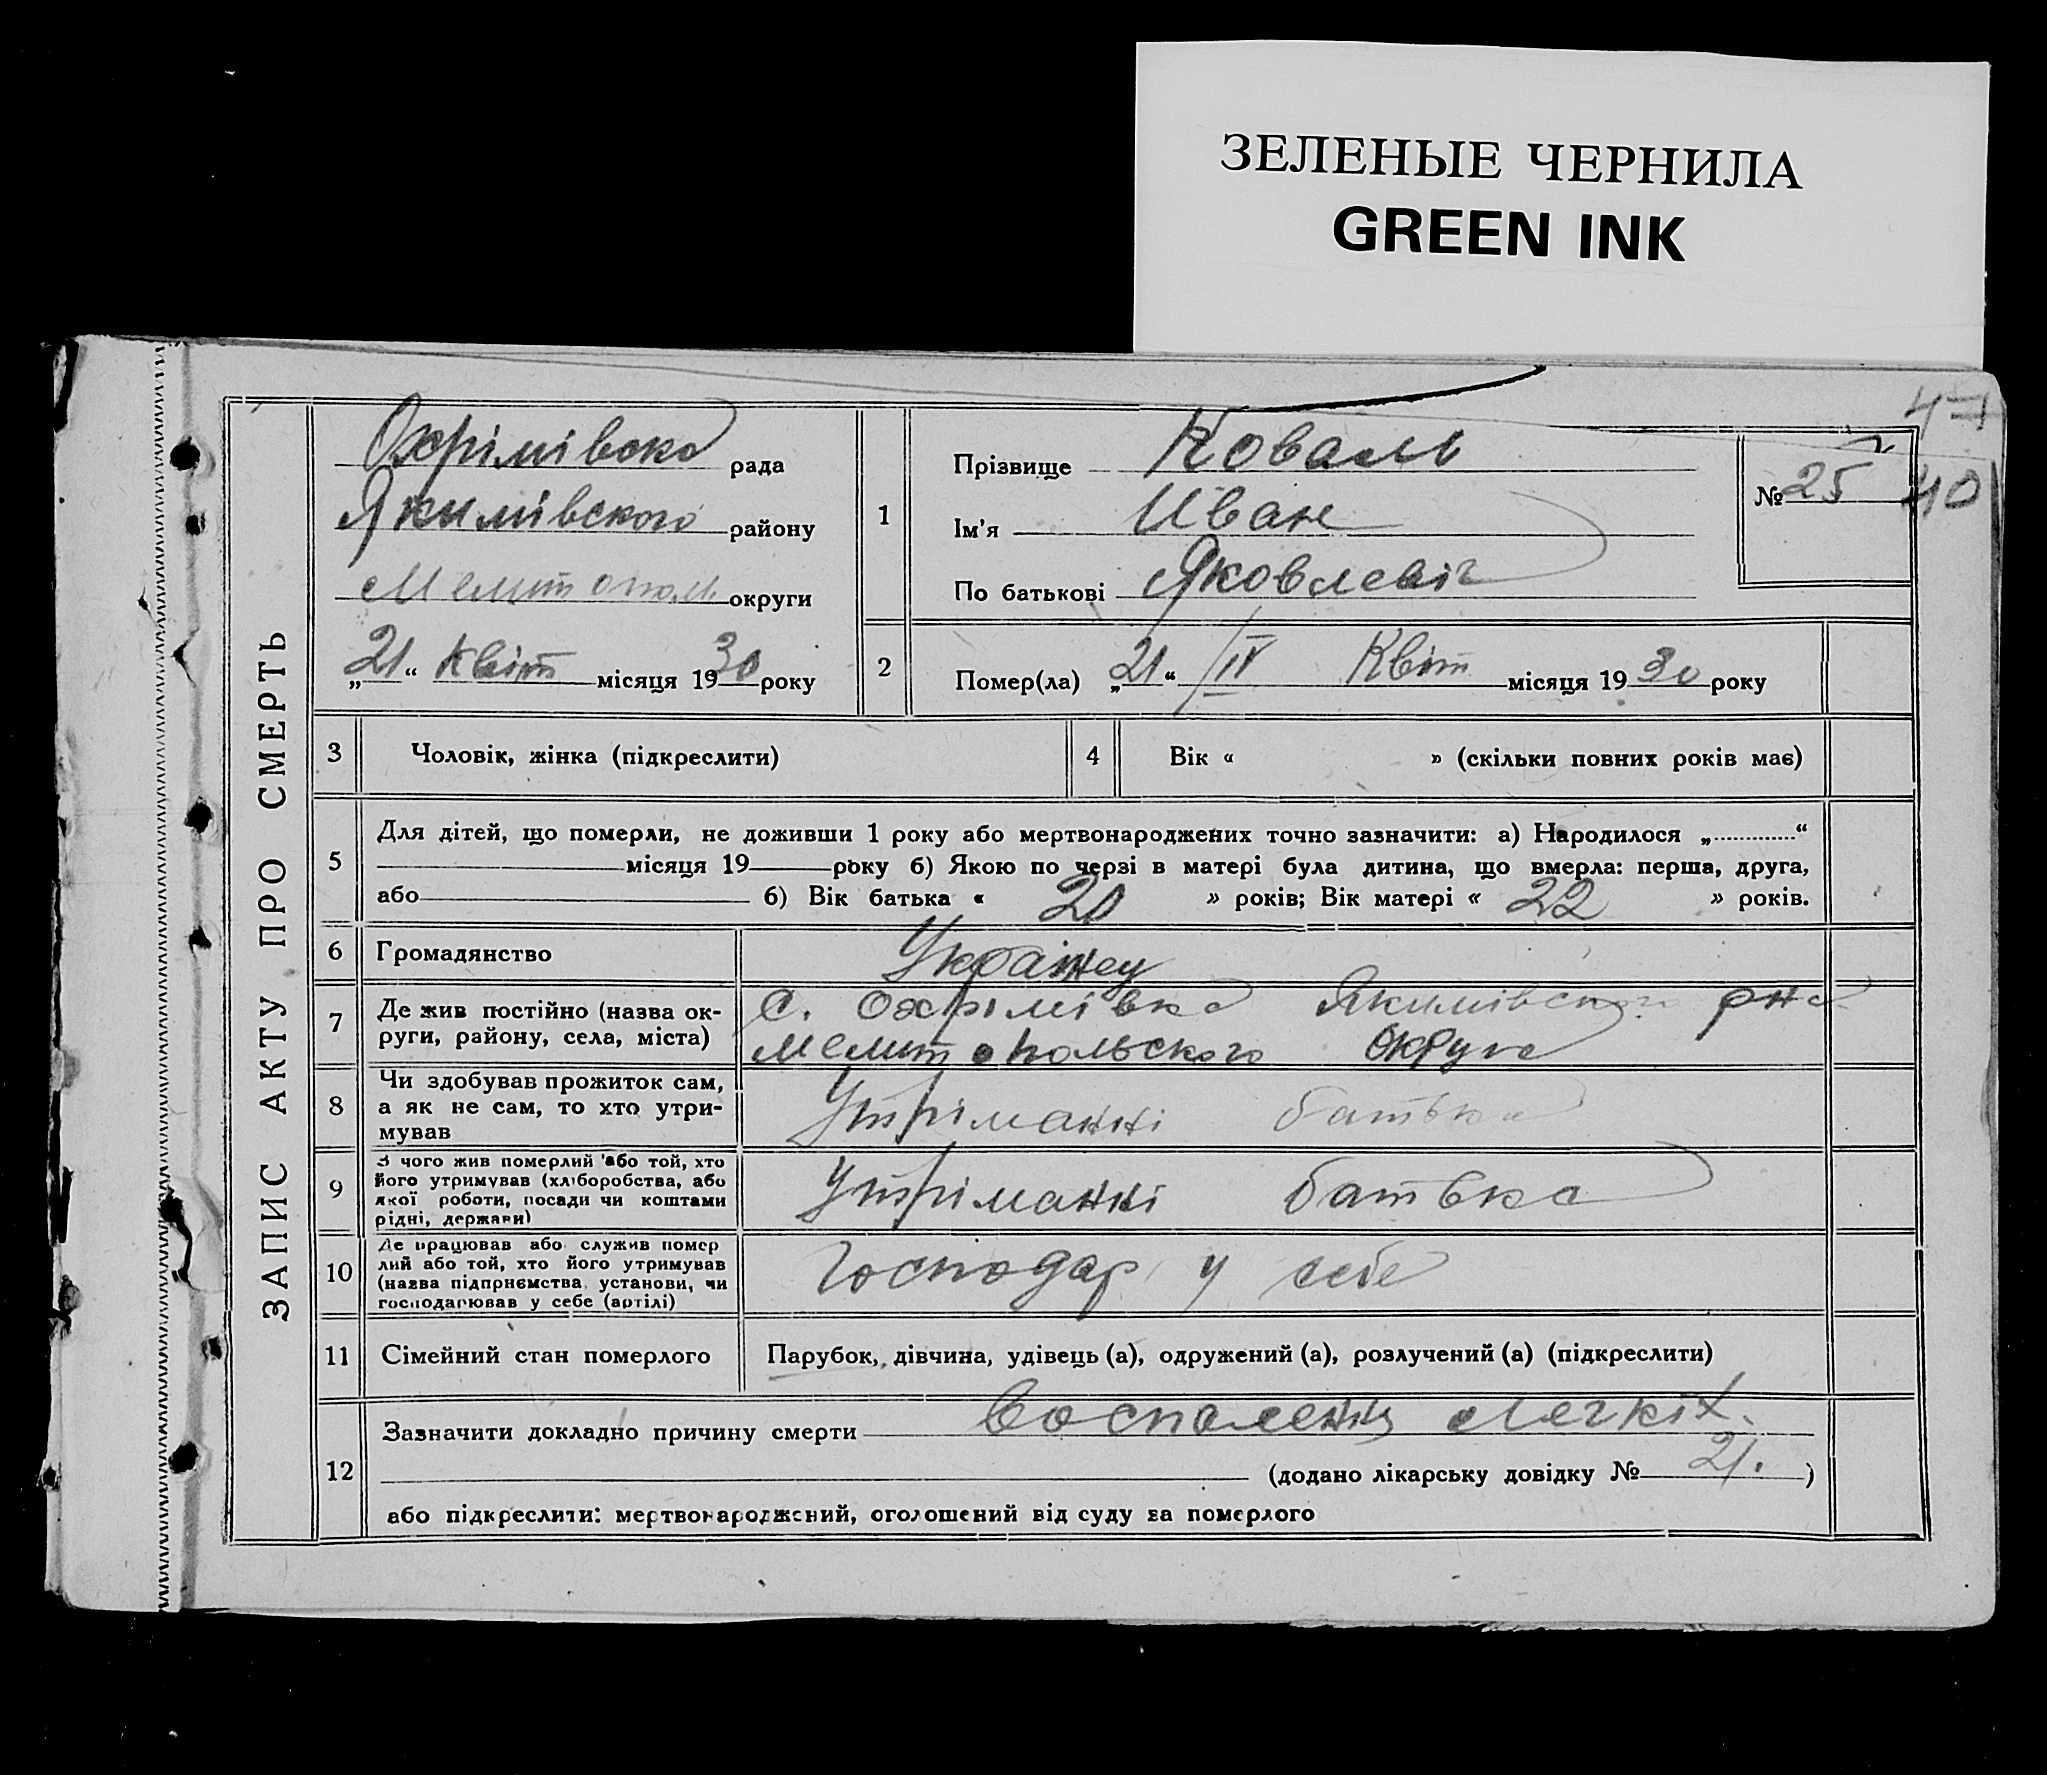 ЗЕЛЕНЫЕ ЧЕРНИЛА
GREEN INK
47
40
ЗАПИС АКТУ ПРО СМЕРТЬ
Охрімівска рада
Якимівского району
Мелитопол округи
„21“ Квіт місяця 1930 року
1
Прізвище Коваль
Ім'я Иван
По батькові Яковлевіч
№ 25
2
Помер(ла) „21“ IV Квіт місяця 1930 року
3
Чоловік, жінка (підкреслити)
4
Вік « » (скільки повних років має)
5
Для дітей, що померли, не доживши 1 року або мертвонароджених точно зазначити: а) Народилося „ “
місяця 19 року б) Якою по черзі в матері була дитина, що вмерла: перша, друга,
або б) Вік батька « 20 » років; Вік матері « 22 » років.
6
Громадянство
Украінец
7
Де жив постійно (назва ок-
руги, району, села, міста)
С. Охрімівка Якимівского рна
Мелитопольского округа
8
Чи здобував прожиток сам,
а як не сам, то хто утри-
мував
Утріманні батька
9
З чого жив померлий або той, хто
його утримував (хліборобства, або
якої роботи, посади чи коштами
рідні, держави)
Утріманні батька
10
Де працював або служив помер
лий або той, хто його утримував
(назва підприємства, установи, чи
господарював у себе (артілі)
Господар у себе
11
Сімейний стан померлого
Парубок, дівчина, удівець (а), одружений (а), розлучений (а) (підкреслити)
12
Зазначити докладно причину смерти Воспаления Легкіх.
(додано лікарську довідку № 21. )
або підкреслити: мертвонароджений, оголошений від суду за померлого